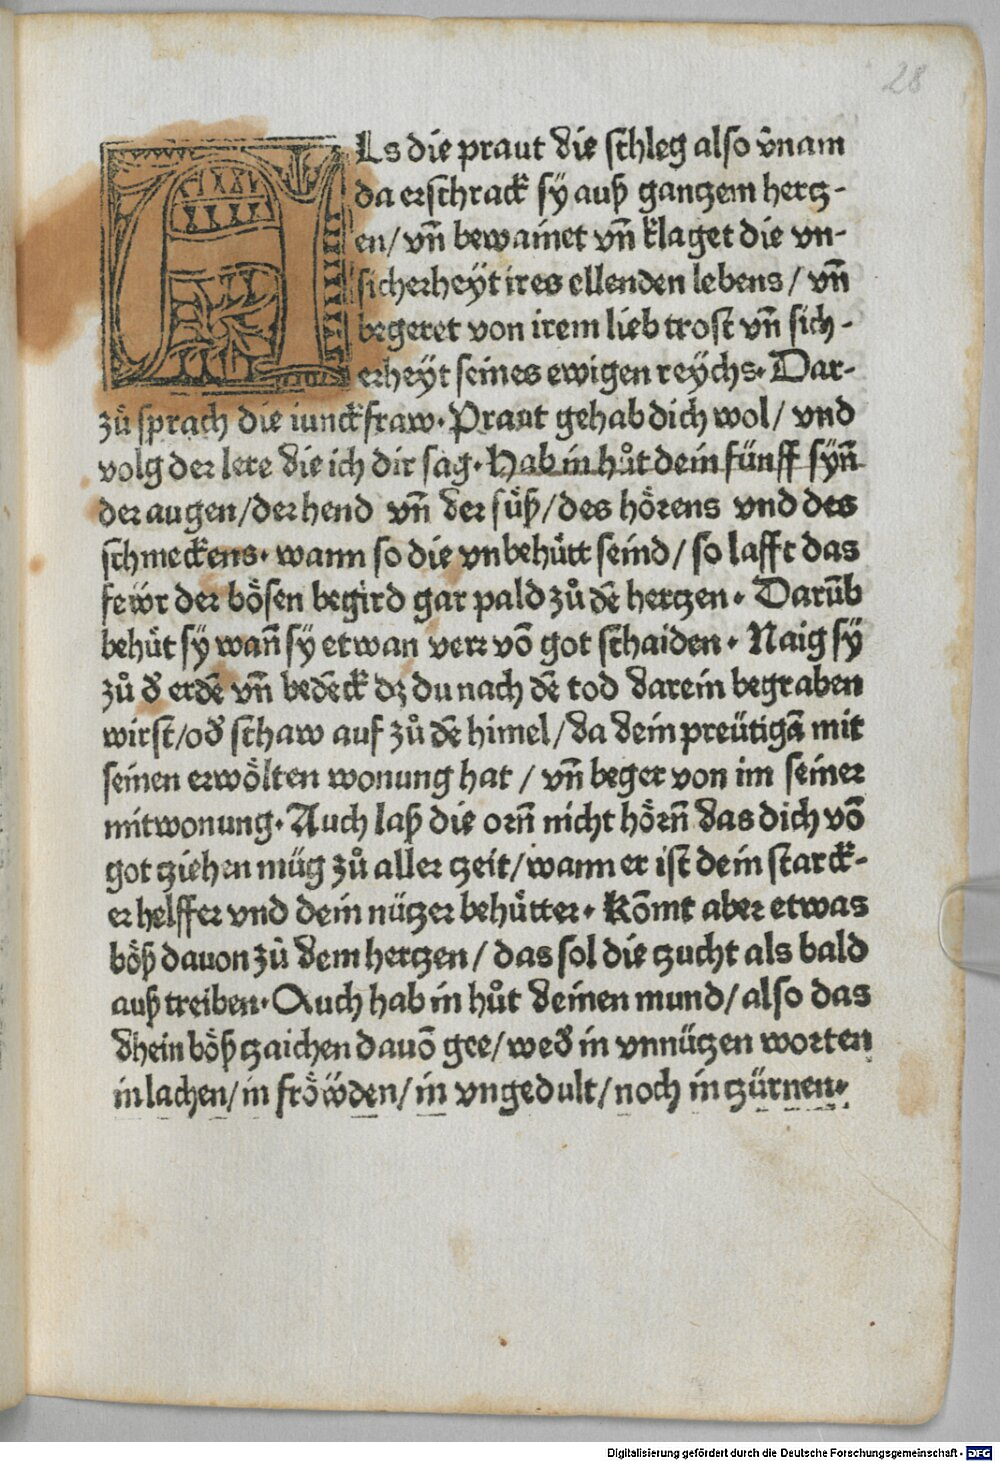 28
ALs die praut die schleg also v̄nam
da erschrack sÿ auß gantzem hertz-
en/ vn̄ bewainet vn̄ klaget die vn-
sicherheÿt ires ellenden lebens/ vn̄
begeret von irem lieb trost vn̄ sich-
erheÿt seines ewigen reÿchs. Dar-
zů sprach die iunckfraw. Praut gehab dich wol/ vnd
volg der lere die ich dir sag. Hab in hůt dein fünff sÿn̄
der augen/ der hend vn̄ der füß/ des hörens vnd des
schmeckens. wann so die vnbehütt seind/ so lafft das
fewr der bösen begird gar pald zů dē hertzen. Darūb
behüt sÿ wan̄ sÿ etwan verr vō got schaiden. Naig sÿ
zů đ erdē vn̄ bedēck dz du nach dē tod darein begraben
wirst/ ođ schaw auf zů dē himel/ da dein preütigā mit
seinen erwölten wonung hat/ vn̄ beger von im seiner
mitwonung. Auch laß die orn̄ nicht hörn̄ das dich vō
got tziehen müg zů aller tzeit/ wann er ist dein starck-
er helffer vnd dein nützer behütter. Kōmt aber etwas
böß dauon zů dem hertzen/ das sol die tzucht als bald
auß treiben. Auch hab in hůt deinen mund/ also das
dhein böß tzaichen dauō gee/ weđ in vnnützen worten
in lachen/ in fröwden/ in vngedult/ noch in tzürnen.
Digitalisierung gefördert durch die Deutsche Forschungsgemeinschaft - DFG